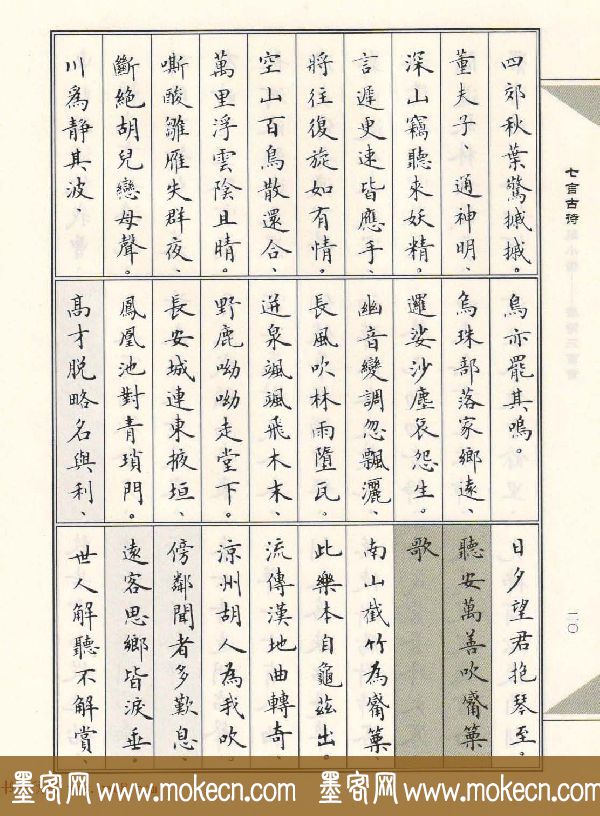 四郊秋葉驚摵摵。
董夫子、通神明、
深山竊聽來妖精。
言遲更速皆應手、
將往復旋如有情。
空山百鳥散還合、
萬里浮雲陰且晴。
嘶酸雛雁失群夜、
斷絕胡兒戀母聲。
川爲靜其波、
鳥亦罷其鳴。
烏珠部落家鄉遠、
邏娑沙塵哀怨生。
幽音變調忽飄灑、
長風吹林雨墮瓦。
迸泉颯颯飛木末、
野鹿呦呦走堂下。
長安城連東掖垣、
鳳凰池對青瑣門。
高才脫略名與利、
日夕望君抱琴至。
聽安萬善吹觱篥
歌
南山截竹為觱篥、
此樂本自龜茲出。
流傳漢地曲轉奇、
涼州胡人為我吹。
傍鄰聞者多歎息、
遠客思鄉皆淚垂。
世人解聽不解賞、
七言古詩
二〇
墨客网 www.mokecn.com 墨客网 www.mokecn.com